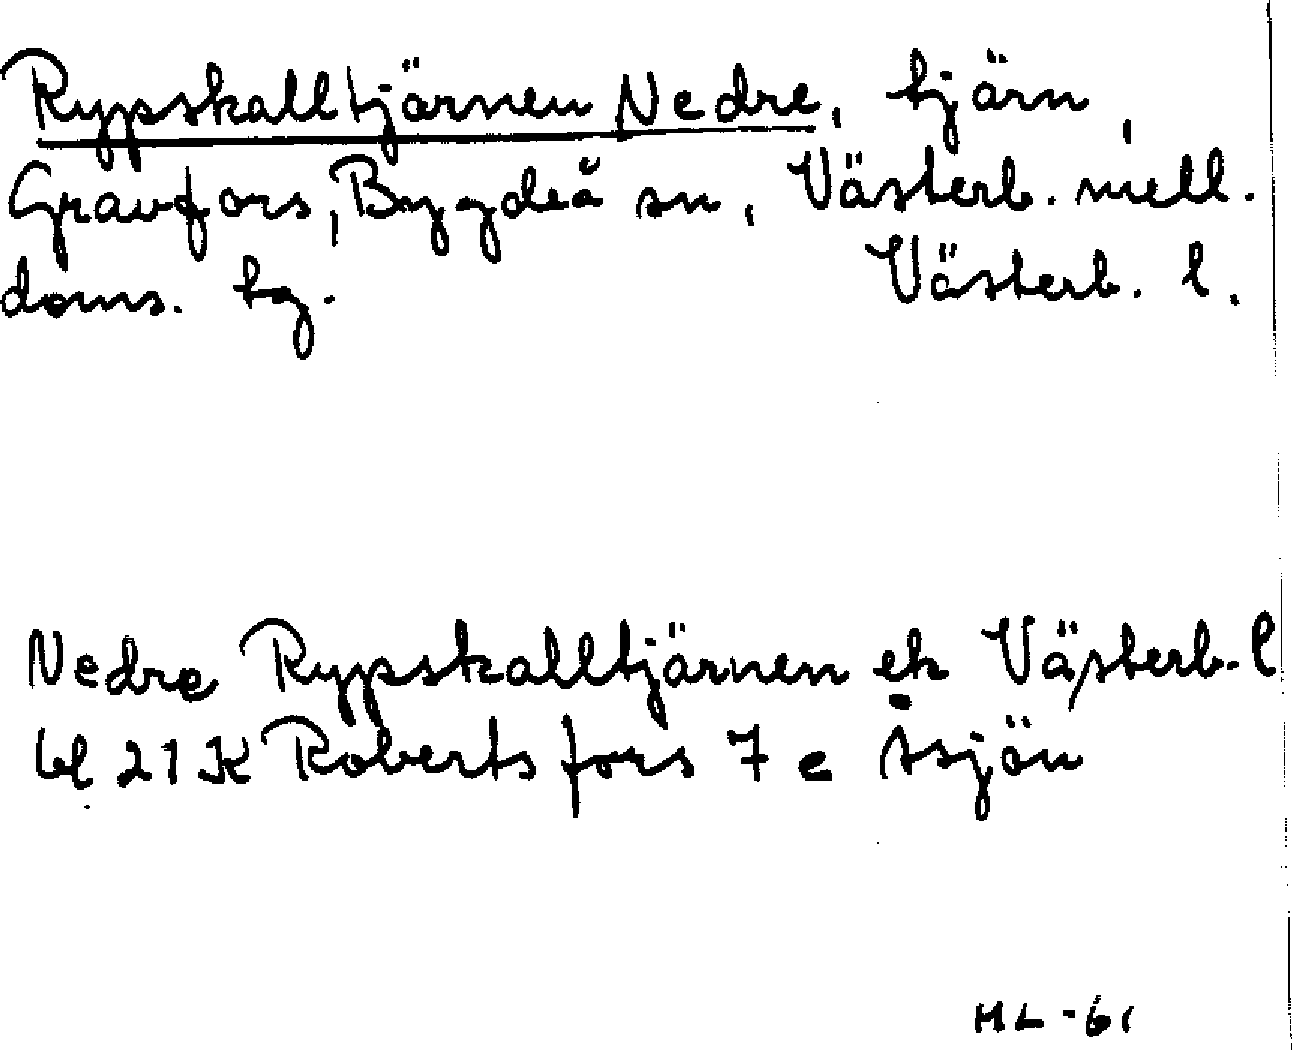 Rypskalltjärnen Nedre, tjärn,
Gravfors, Bygdeå sn, Västerb. mell.
doms. tg. Västerb. l.
Nedre Rypskalltjärnen ek Västerb. l
bl 21 K Robertsfors 7 e Åsjön
HL-61